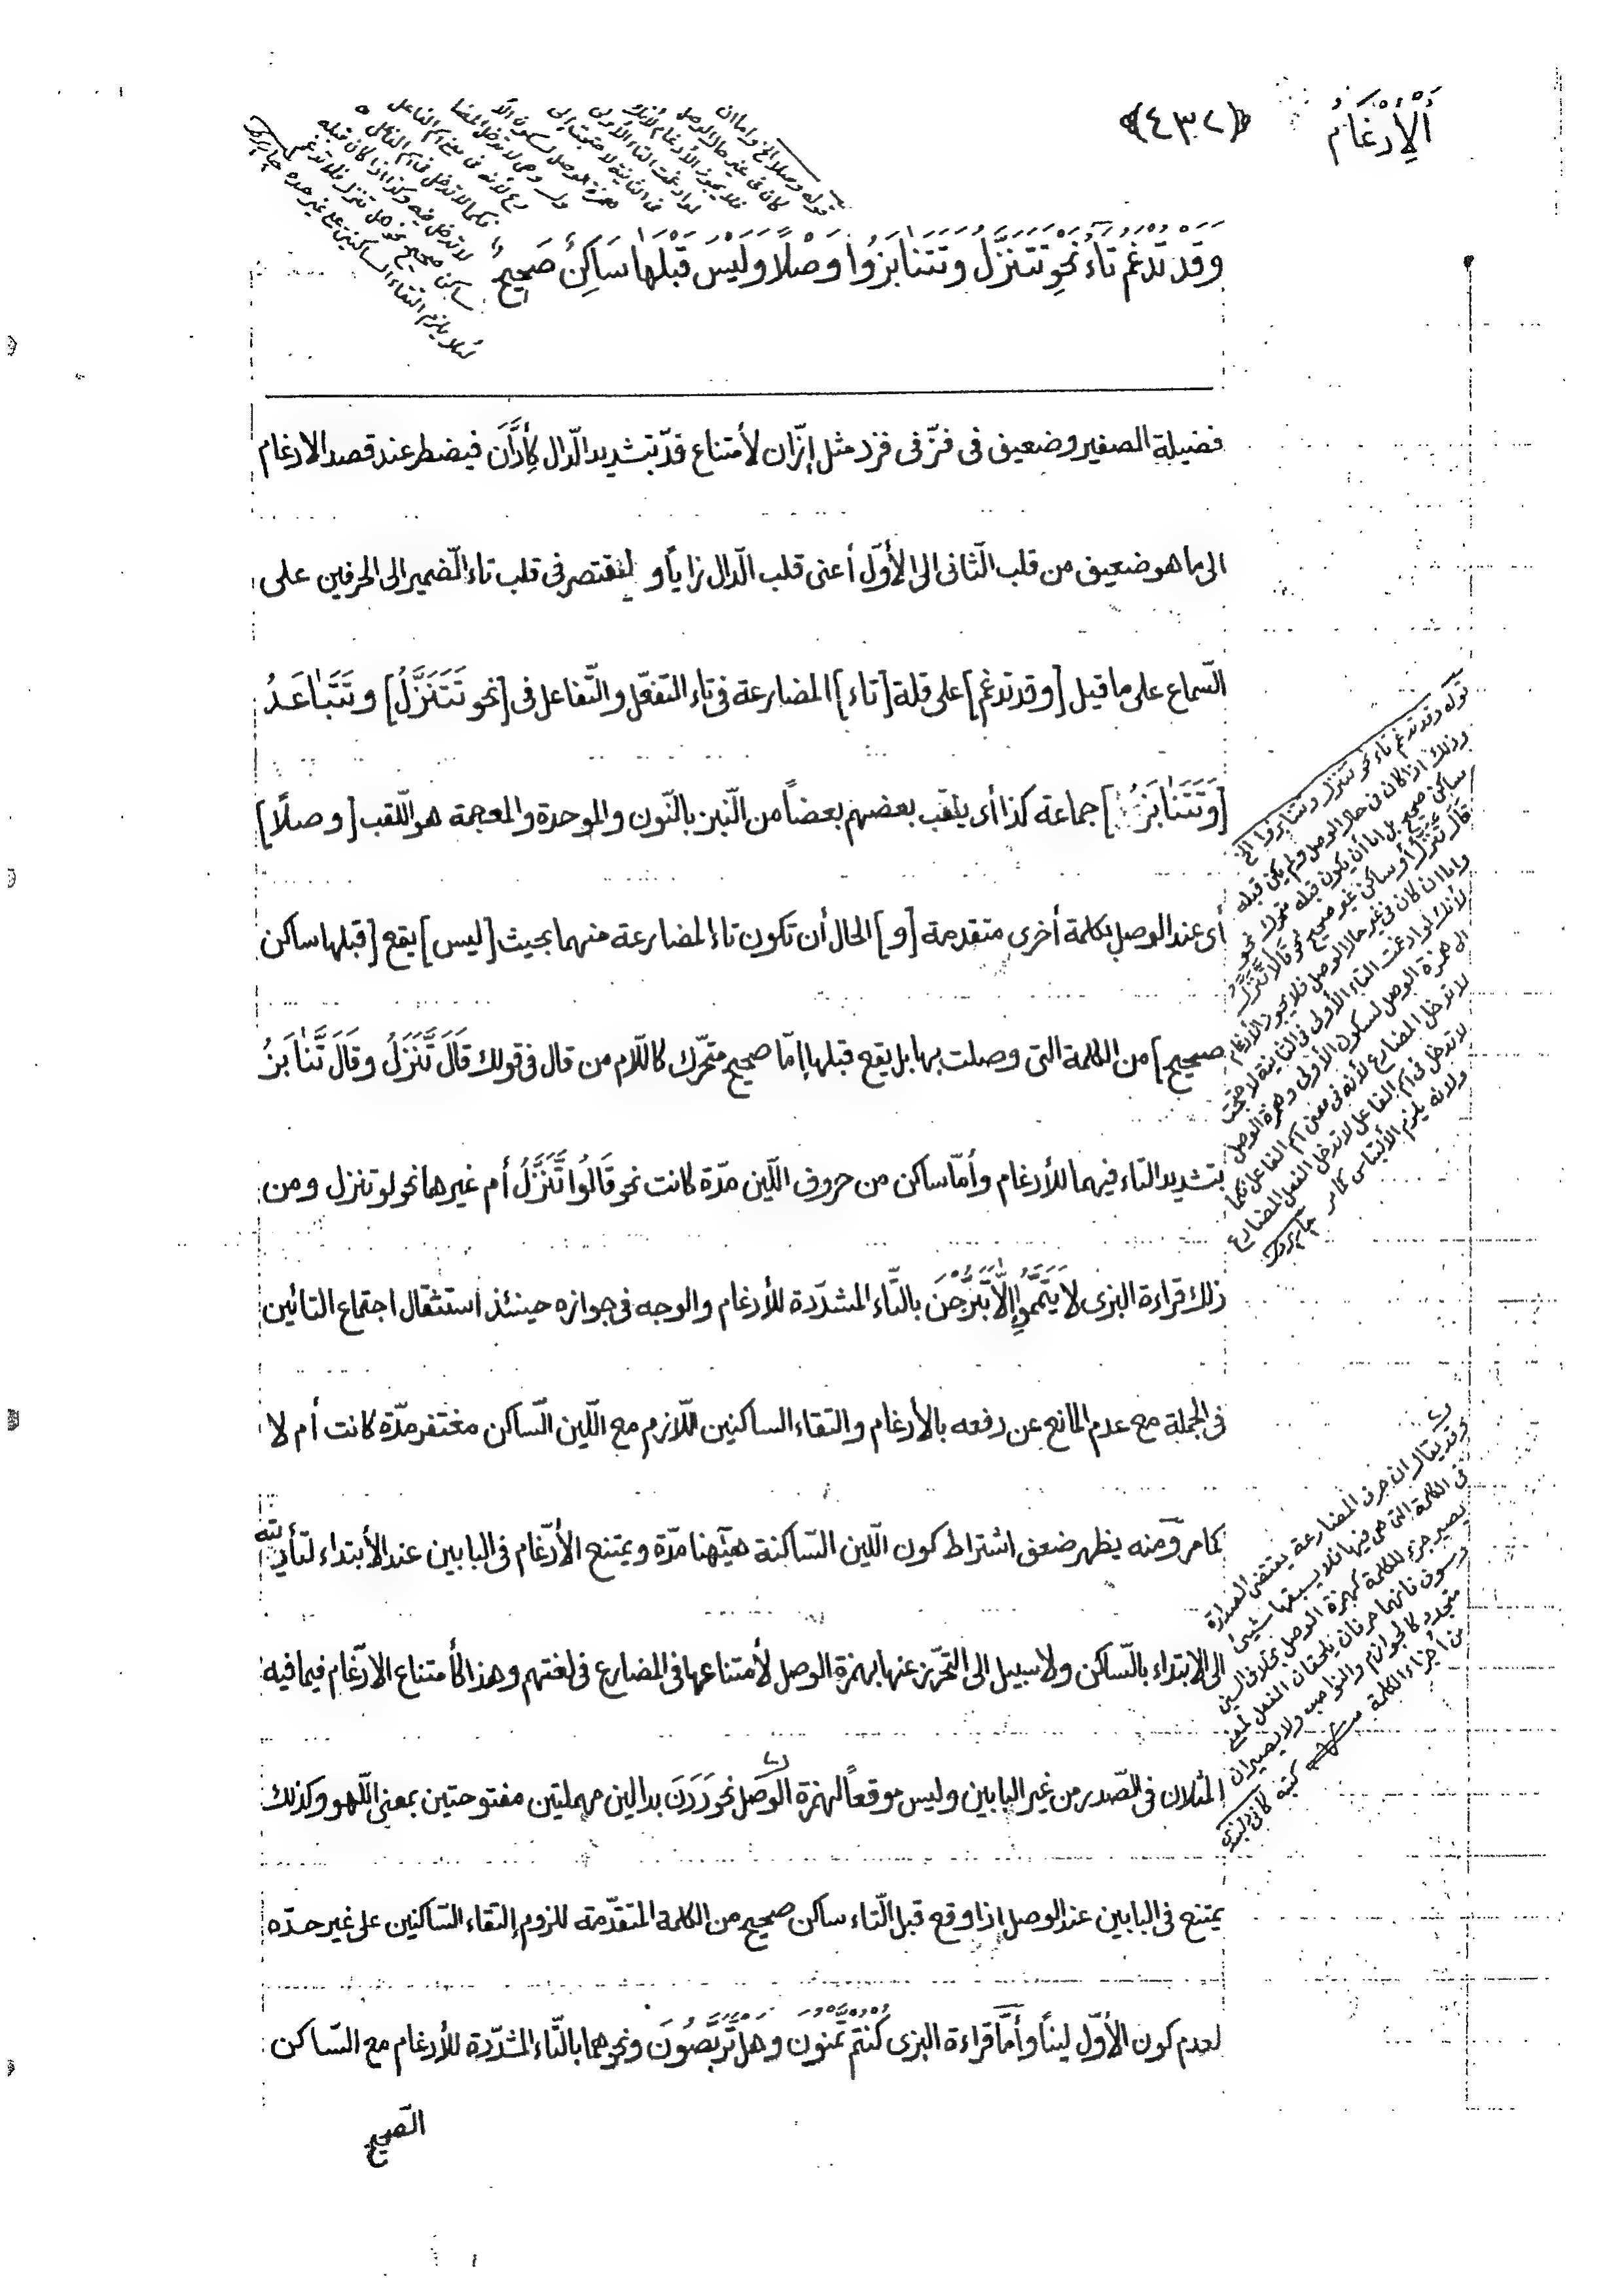 أَلْإِدْغَامُ
﴿٤٣٢﴾
وَقَدْ تُدْغَمُ تَاءُ نَحْوِ تَتَنَزَّلُ وَتَتَنَابَزُوا وَصْلًا وَلَيْسَ قَبْلَهَا سَاكِنٌ صَحِيحٌ
فضيلة الصفير وضعيف فى فزّ فى فزد مثل إزّان لأمتناع فدّ بتشديد الدّال كأدَّانَ فيضطر عند قصد الادغام
الى ما هو ضعيف من قلب الثّانى الى الأوّل أعنى قلب الدّال زاياً و ليقتصر فى قلب تاء الضّمير الى الحرفين على
السّماع على ما قيل [وقد تدغم] على قلة [تاء] المضارعة فى تاء التفعّل والتّفاعل فى [نحو تَتَنَزَّلُ] و تَتَبَاعَدُ
[وَتَتَنَابَزُ] جماعة كذا أى يلقّب بعضهم بعضاً من النّبز بالنّون والموحدة والمعجمة هو اللّقب [وصلًا]
أى عند الوصل بكلمة أخرى متقدمة [و] الحال أن تكون تاء المضارعة منهما بحيث [ليس] يقع [قبلها ساكن
صحيح] من الكلمة التى وصلت بها بل يقع قبلها إمّا صحيح متحّرك كاللّام من قال فى قولك قَالَ تَّنَزَّلُ وقَالَ تَّنَابَزُ
بتشديد التاء فيهما للأدغام وأمّا ساكن من حروف اللّين مدّة كانت نحو قَالُوا تَّنَزَّلُ أم غيرها نحو لو تنزل ومن
ذلك قراءة البزى لَا تَّيَمَّمُوا إِلَّا تَّبَرَّجْنَ بالتّاء المشدّدة للأدغام والوجه فى جوازه حينئذ استثقال اجتماع التائين
فى الجملة مع عدم المانع عن دفعه بالأدغام والتقاء الساكنين اللّازم مع اللّين السّاكن مغتفر مدّة كانت أم لا
كما مر ومنه يظهر ضعف اشتراط كون اللّين السّاكنة هيٓهنا مدّة ويمتنع الأدّغام فى البابين عند الأبتداء لتأديته
الى الابتداء بالسّاكن ولا سبيل الى التحّرز عنها بهمزة الوصل لأمتناعها فى المضارع فى لغتهم وهذا كأمتناع الادّغام فيما فيه
المثلان فى الصّدر من غير البابين وليس موقعاً لهمزة الوصل نحو دَدَنَ بدالين مهملتين مفتوحتين بمعنى اللّهو وكذلك
يمتنع فى البابين عند الوصل إذا وقع قبل التّاء ساكن صحيح من الكلمة المتقدّمة للزوم إلتقاء السّاكنين على غير حدّه
لعدم كون الأوّل ليناً وأمَّا قراءة البزى كُنْتُمْ تَّمَنَّوْنَ وَهَلْ تَّرَبَّصُونَ ونحوهما بالتّاء المشدّدة للأدغام مع السّاكن
الصّحيح
قوله وقد تدغم تاء نحو تتنزل وتتنابزوا الخ
وذلك اذا كان فى حال الوصل ولم يكن قبله
ساكن صحيح بل اما أن يكون قبله متحرك نحو
قال تَّنزل أو ساكن غير صحيح نحو قالا تَّنزل
واما ان كان فى غير حال الوصل فلا يجوز الأدغام
لأنك لو ادغمت التاء الأولى فى الثانية لاحتجت
الى همزة الوصل لسكون الأولى وهمزة الوصل
لا تدخل المضارع لأنه فى معنى اسم الفاعل فكما
لا تدخل فى اسم الفاعل لا تدخل الفعل المضارع
ولانه يلزم الألتباس كما مر
وقد يقال ان حرف المضارعة يقتضى الصدارة
فى الكلمة التى هى فيها فلا يسبقها شيئ
يصير جزء للكلمة كهمزة الوصل بخلاف السين
وسوف فانهما حرفان يلحقان الفعل لمعنى
متجدد كالجوازم والنواصب ولا يصيران
من أجزاء الكلمة